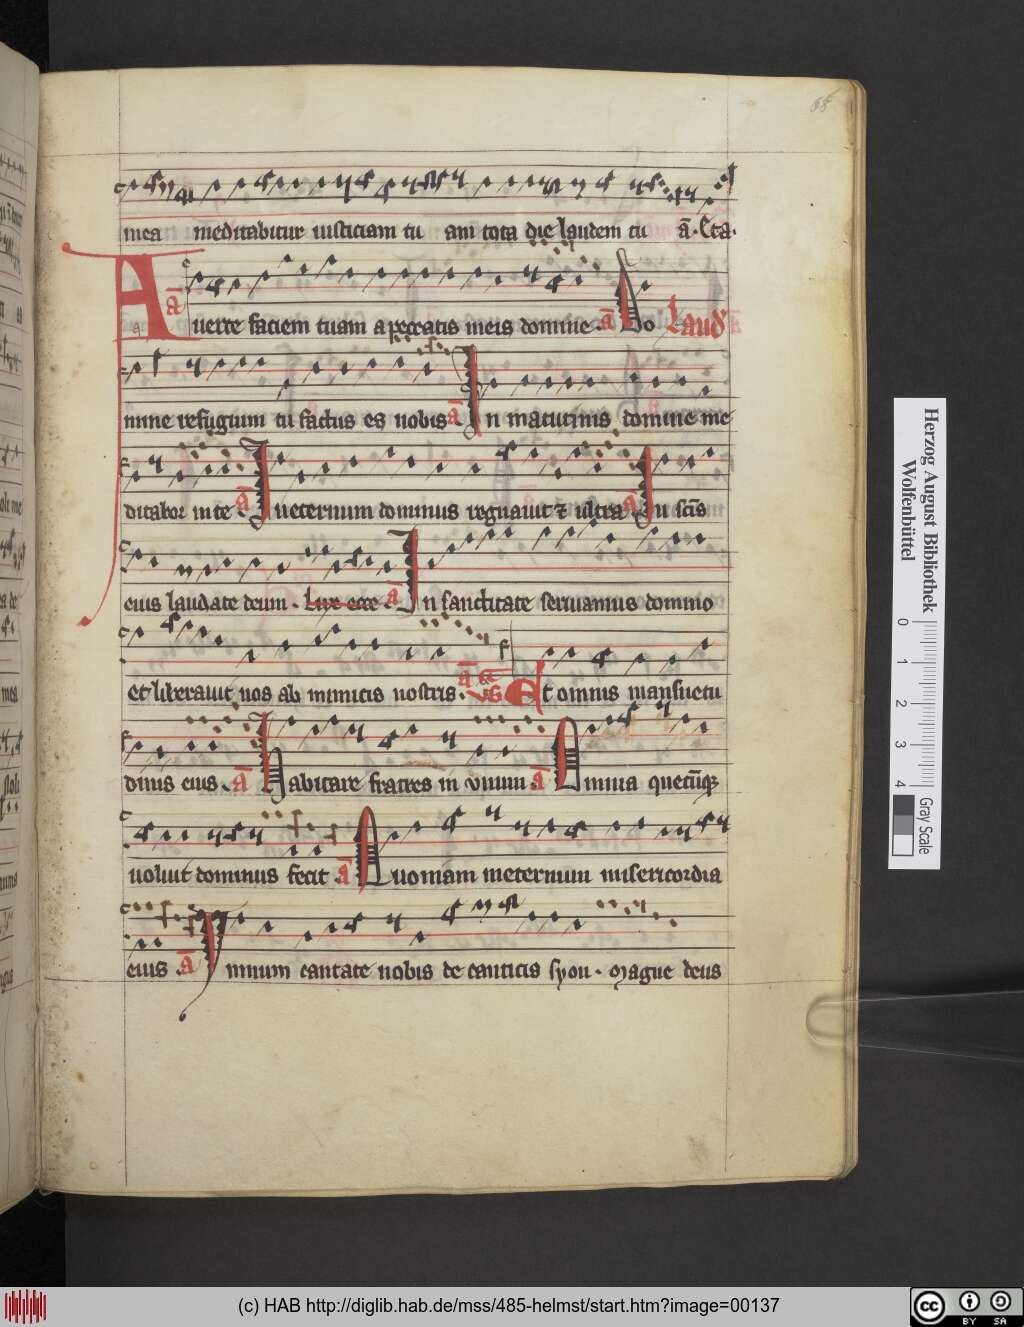 65
mea meditabitur iusticiam tu am tota die laudem tu ā. Cta.
ā Auerte faciem tuam a peccatis meis domine. ā Do Laud
mine refugium tu factus es nobis ā In matutinis domine me
ditabor in te. ā In eternum dominus regnauit ⁊ ultra ā In scīs
eius laudate deum. Lux ecce. ā In sanctitate seruiamus domino
et liberauit nos ab inimicis nostris. ā Et omnis mansuetu
dinis eius. ā Habitare fratres in unum ā Omnia quecūqꝫ
uoluit dominus fecit. ā Quoniam ineternum misericordia
eius. ā Ymnum cantate nobis de canticis syon. Magne deus
Herzog August Bibliothek
Wolfenbüttel
0 1 2 3 4
Gray Scale
(c) HAB http://diglib.hab.de/mss/485-helmst/start.htm?image=00137
cc BY SA